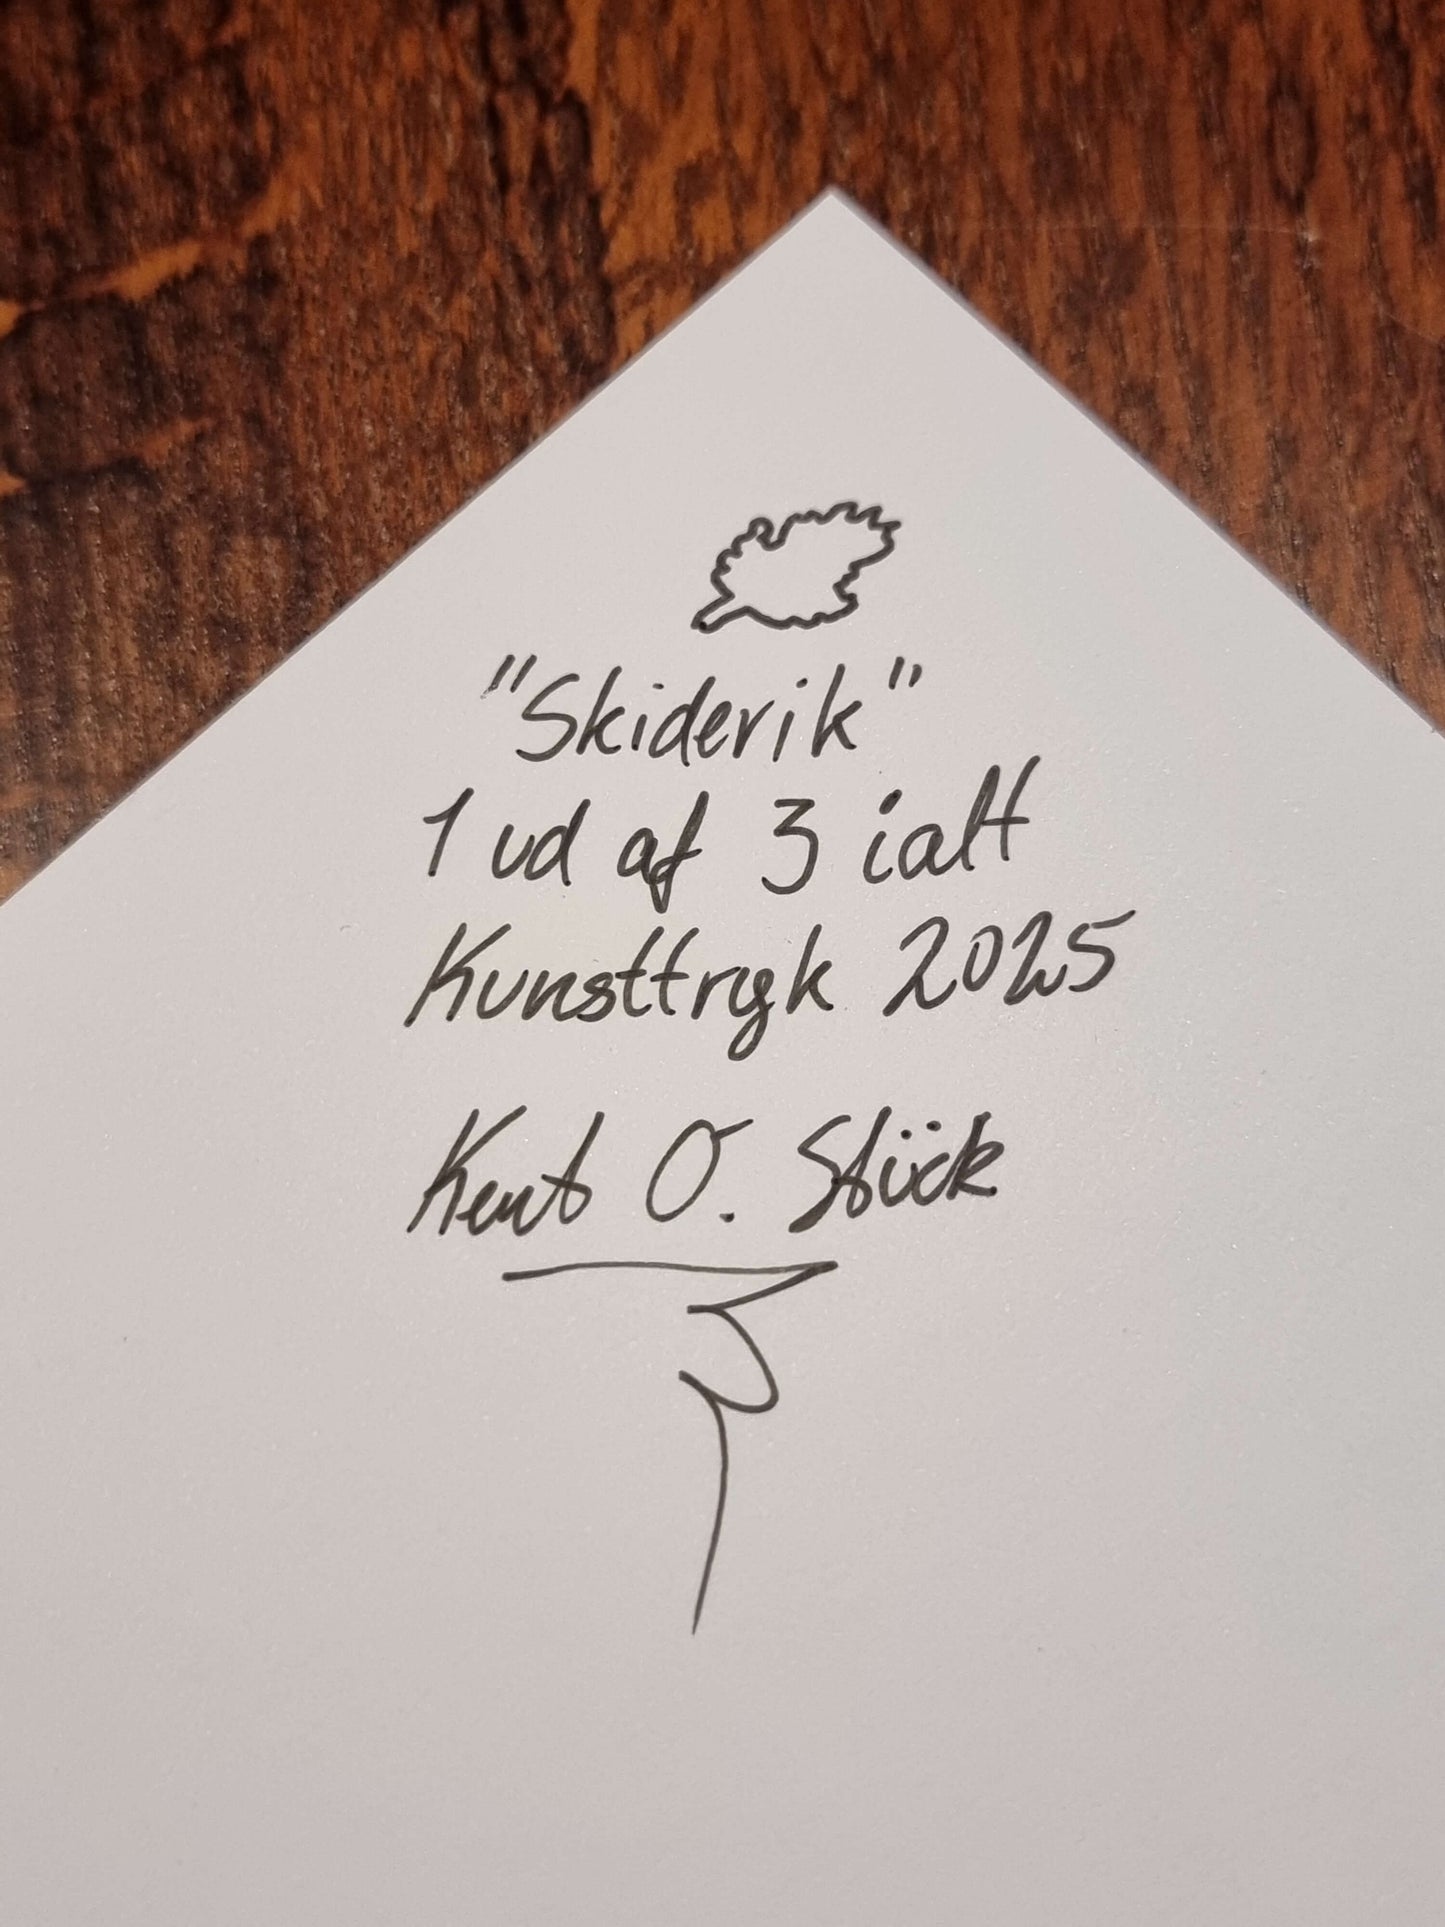 "Skiderik"
1 ud af 3 ialt
Kunsttryk 2025
Kent O. Stück